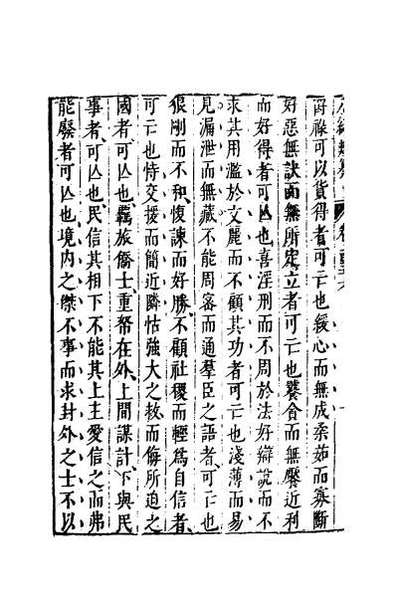 爵祿可以貨得者可亡也緩心而無成柔茹而寡斷
好惡無訣而無所定立者可亡也饕食而無饜近利
而好得者可亾也喜淫刑而不周於法好辯說而不
求其用濫於文麗而不顧其功者可亡也淺薄而易
見漏泄而無藏不能周審而通羣臣之語者可亡也
狠剛而不和愎諫而好勝不顧社稷而輕爲自信者
可亡也恃交援而簡近隣怙強大之救而侮所迫之
國者可亾也羈旅僑士重帑在外上間謀計下與民
事者可亾也民信其相下不能其上主愛信之而弗
能廢者可亾也境内之傑不事而求封外之士不以